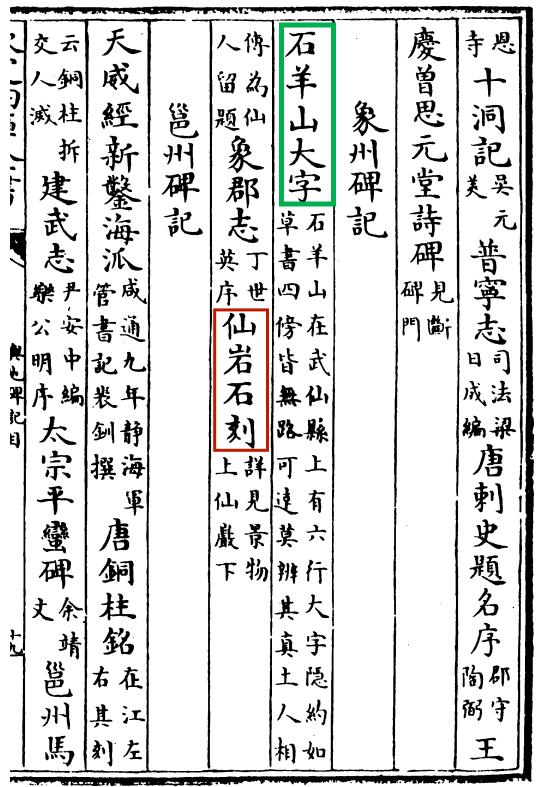 恩寺十洞記吳元美普寧志司法梁日成編唐刺史題名序郡守陶弼王
慶曾思元堂詩碑見斷碑門
象州碑記
石羊山大字石羊山在武仙縣上有六行大字隱約如草書四傍皆無路可達莫辨其真土人相
傳為仙人留題象郡志丁世英序仙岩石刻詳見景物上仙巖下
邕州碑記
天威經新鑿海派咸通九年靜海軍管書記裴釧撰唐銅柱銘在江左右其刻
云銅柱拆交人滅建武志尹安中編公明序太宗平蠻碑余靖文邕州馬
輿地碑記目
十九